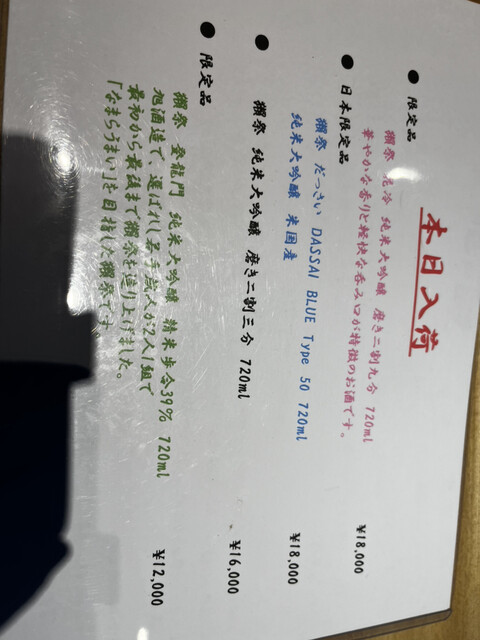 本日入荷
● 限定品
獺祭 花冷 純米大吟醸 磨き二割九分 720ml
華やかな香りと軽快な呑み口が特徴のお酒です。
¥18,000
● 日本限定品
獺祭 だっさい DASSAI BLUE Type 50 720ml
純米大吟醸 米国産
¥18,000
●
獺祭 純米大吟醸 磨き二割三分 720ml
¥16,000
● 限定品
獺祭 登龍門 純米大吟醸 精米歩合39% 720ml
旭酒造で、選ばれし若手蔵人が2人1組で
最初から最後まで獺祭を造り上げました。
「なまらうまい」を目指した獺祭です。
¥12,000